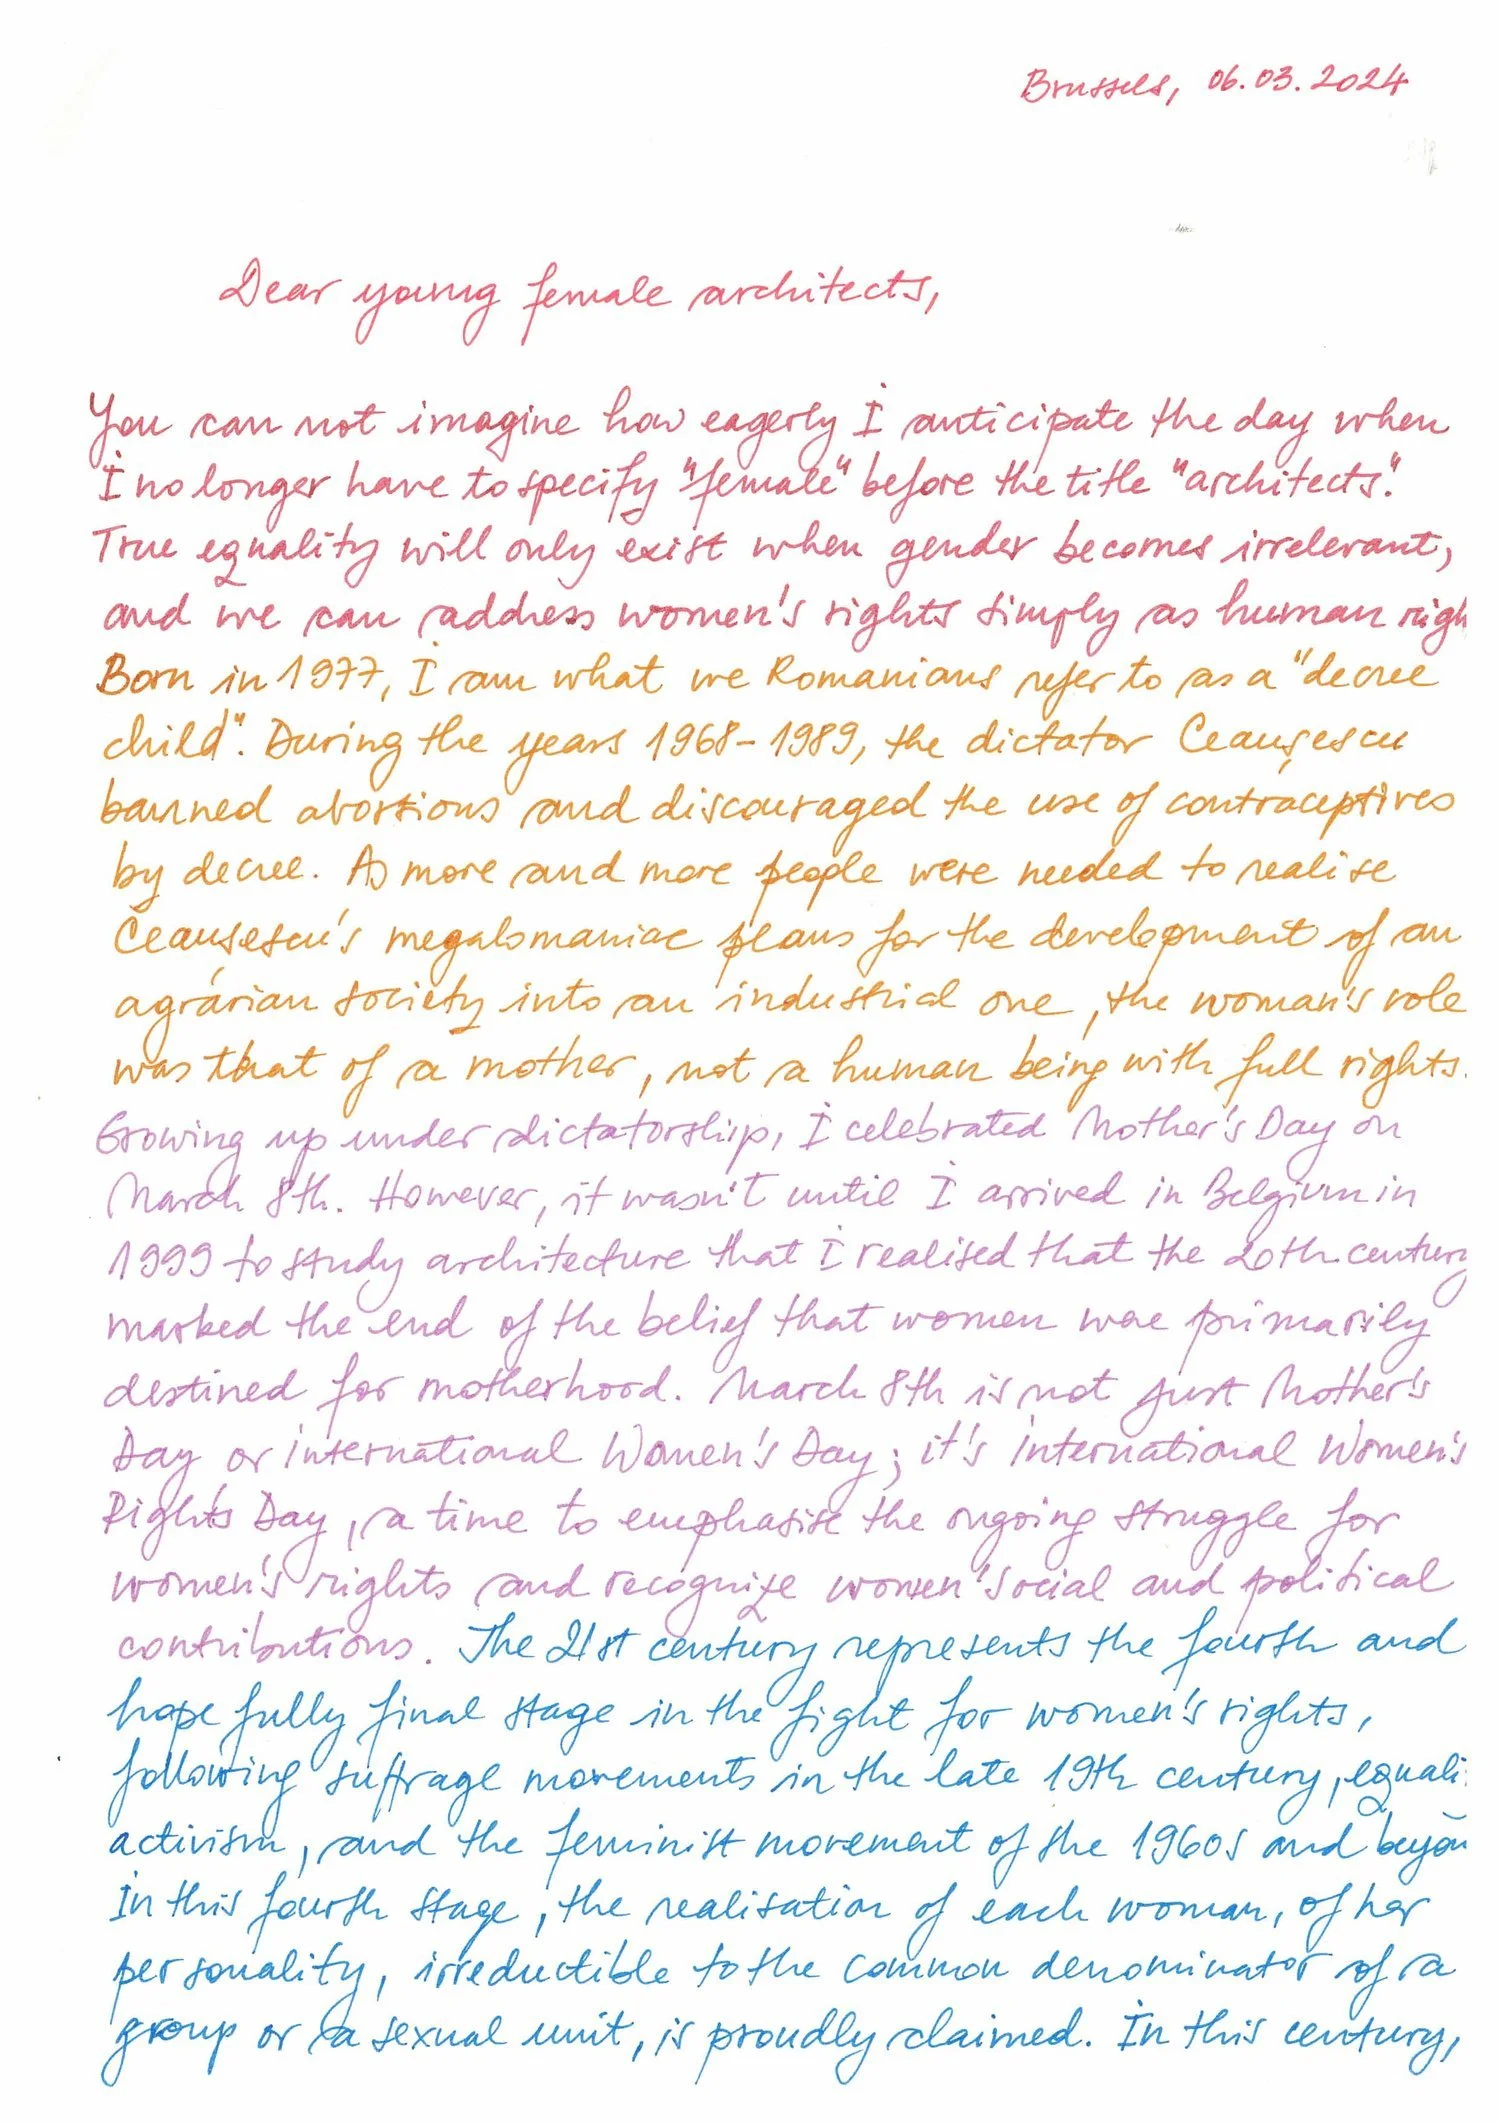 Brussels, 06.03.2024
Dear young female architects,
You can not imagine how eagerly I anticipate the day when
I no longer have to specify "female" before the title "architects".
True equality will only exist when gender becomes irrelevant,
and we can address women's rights simply as human righ
Born in 1977, I am what we Romanians refer to as a "decree
child". During the years 1968-1989, the dictator Ceaușescu
banned abortions and discouraged the use of contraceptives
by decree. As more and more people were needed to realise
Ceaușescu's megalomaniac plans for the development of an
agrarian society into an industrial one, the woman's role
was that of a mother, not a human being with full rights.
Growing up under dictatorship, I celebrated Mother's Day on
March 8th. However, it wasn't until I arrived in Belgium in
1999 to study architecture that I realised that the 20th century
marked the end of the belief that women were primarily
destined for motherhood. March 8th is not just Mother's
Day or international Women's Day; it's international Women's
Rights Day, a time to emphasise the ongoing struggle for
women's rights and recognize women's social and political
contributions. The 21st century represents the fourth and
hopefully final stage in the fight for women's rights,
following suffrage movements in the late 19th century, equali
activism, and the feminist movement of the 1960s and beyon
In this fourth stage, the realisation of each woman, of her
personality, irreductible to the common denominator of a
group or a sexual unit, is proudly claimed. In this century,